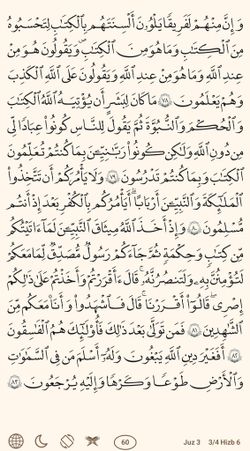 وَإِنَّ مِنْهُمْ لَفَرِيقًا يَلْوُۥنَ أَلْسِنَتَهُم بِٱلْكِتَٰبِ لِتَحْسَبُوهُ
مِنَ ٱلْكِتَٰبِ وَمَا هُوَ مِنَ ٱلْكِتَٰبِ وَيَقُولُونَ هُوَ مِنْ
عِندِ ٱللَّهِ وَمَا هُوَ مِنْ عِندِ ٱللَّهِ وَيَقُولُونَ عَلَى ٱللَّهِ ٱلْكَذِبَ
وَهُمْ يَعْلَمُونَ ٧٨ مَا كَانَ لِبَشَرٍ أَن يُؤْتِيَهُ ٱللَّهُ ٱلْكِتَٰبَ
وَٱلْحُكْمَ وَٱلنُّبُوَّةَ ثُمَّ يَقُولَ لِلنَّاسِ كُونُوا۟ عِبَادًا لِّى
مِن دُونِ ٱللَّهِ وَلَٰكِن كُونُوا۟ رَبَّٰنِيِّۦنَ بِمَا كُنتُمْ تُعَلِّمُونَ
ٱلْكِتَٰبَ وَبِمَا كُنتُمْ تَدْرُسُونَ ٧٩ وَلَا يَأْمُرَكُمْ أَن تَتَّخِذُوا۟
ٱلْمَلَٰٓئِكَةَ وَٱلنَّبِيِّۦنَ أَرْبَابًا أَيَأْمُرُكُم بِٱلْكُفْرِ بَعْدَ إِذْ أَنتُم
مُّسْلِمُونَ ٨٠ وَإِذْ أَخَذَ ٱللَّهُ مِيثَٰقَ ٱلنَّبِيِّۦنَ لَمَآ ءَاتَيْتُكُم
مِّن كِتَٰبٍ وَحِكْمَةٍ ثُمَّ جَآءَكُمْ رَسُولٌ مُّصَدِّقٌ لِّمَا مَعَكُمْ
لَتُؤْمِنُنَّ بِهِۦ وَلَتَنصُرُنَّهُۥ قَالَ ءَأَقْرَرْتُمْ وَأَخَذْتُمْ عَلَىٰ ذَٰلِكُمْ
إِصْرِى قَالُوٓا۟ أَقْرَرْنَا قَالَ فَٱشْهَدُوا۟ وَأَنَا۠ مَعَكُم مِّنَ
ٱلشَّٰهِدِينَ ٨١ فَمَن تَوَلَّىٰ بَعْدَ ذَٰلِكَ فَأُو۟لَٰٓئِكَ هُمُ ٱلْفَٰسِقُونَ
٨٢ أَفَغَيْرَ دِينِ ٱللَّهِ يَبْغُونَ وَلَهُۥٓ أَسْلَمَ مَن فِى ٱلسَّمَٰوَٰتِ
وَٱلْأَرْضِ طَوْعًا وَكَرْهًا وَإِلَيْهِ يُرْجَعُونَ ٨٣
60 Juz 3 3/4 Hizb 6